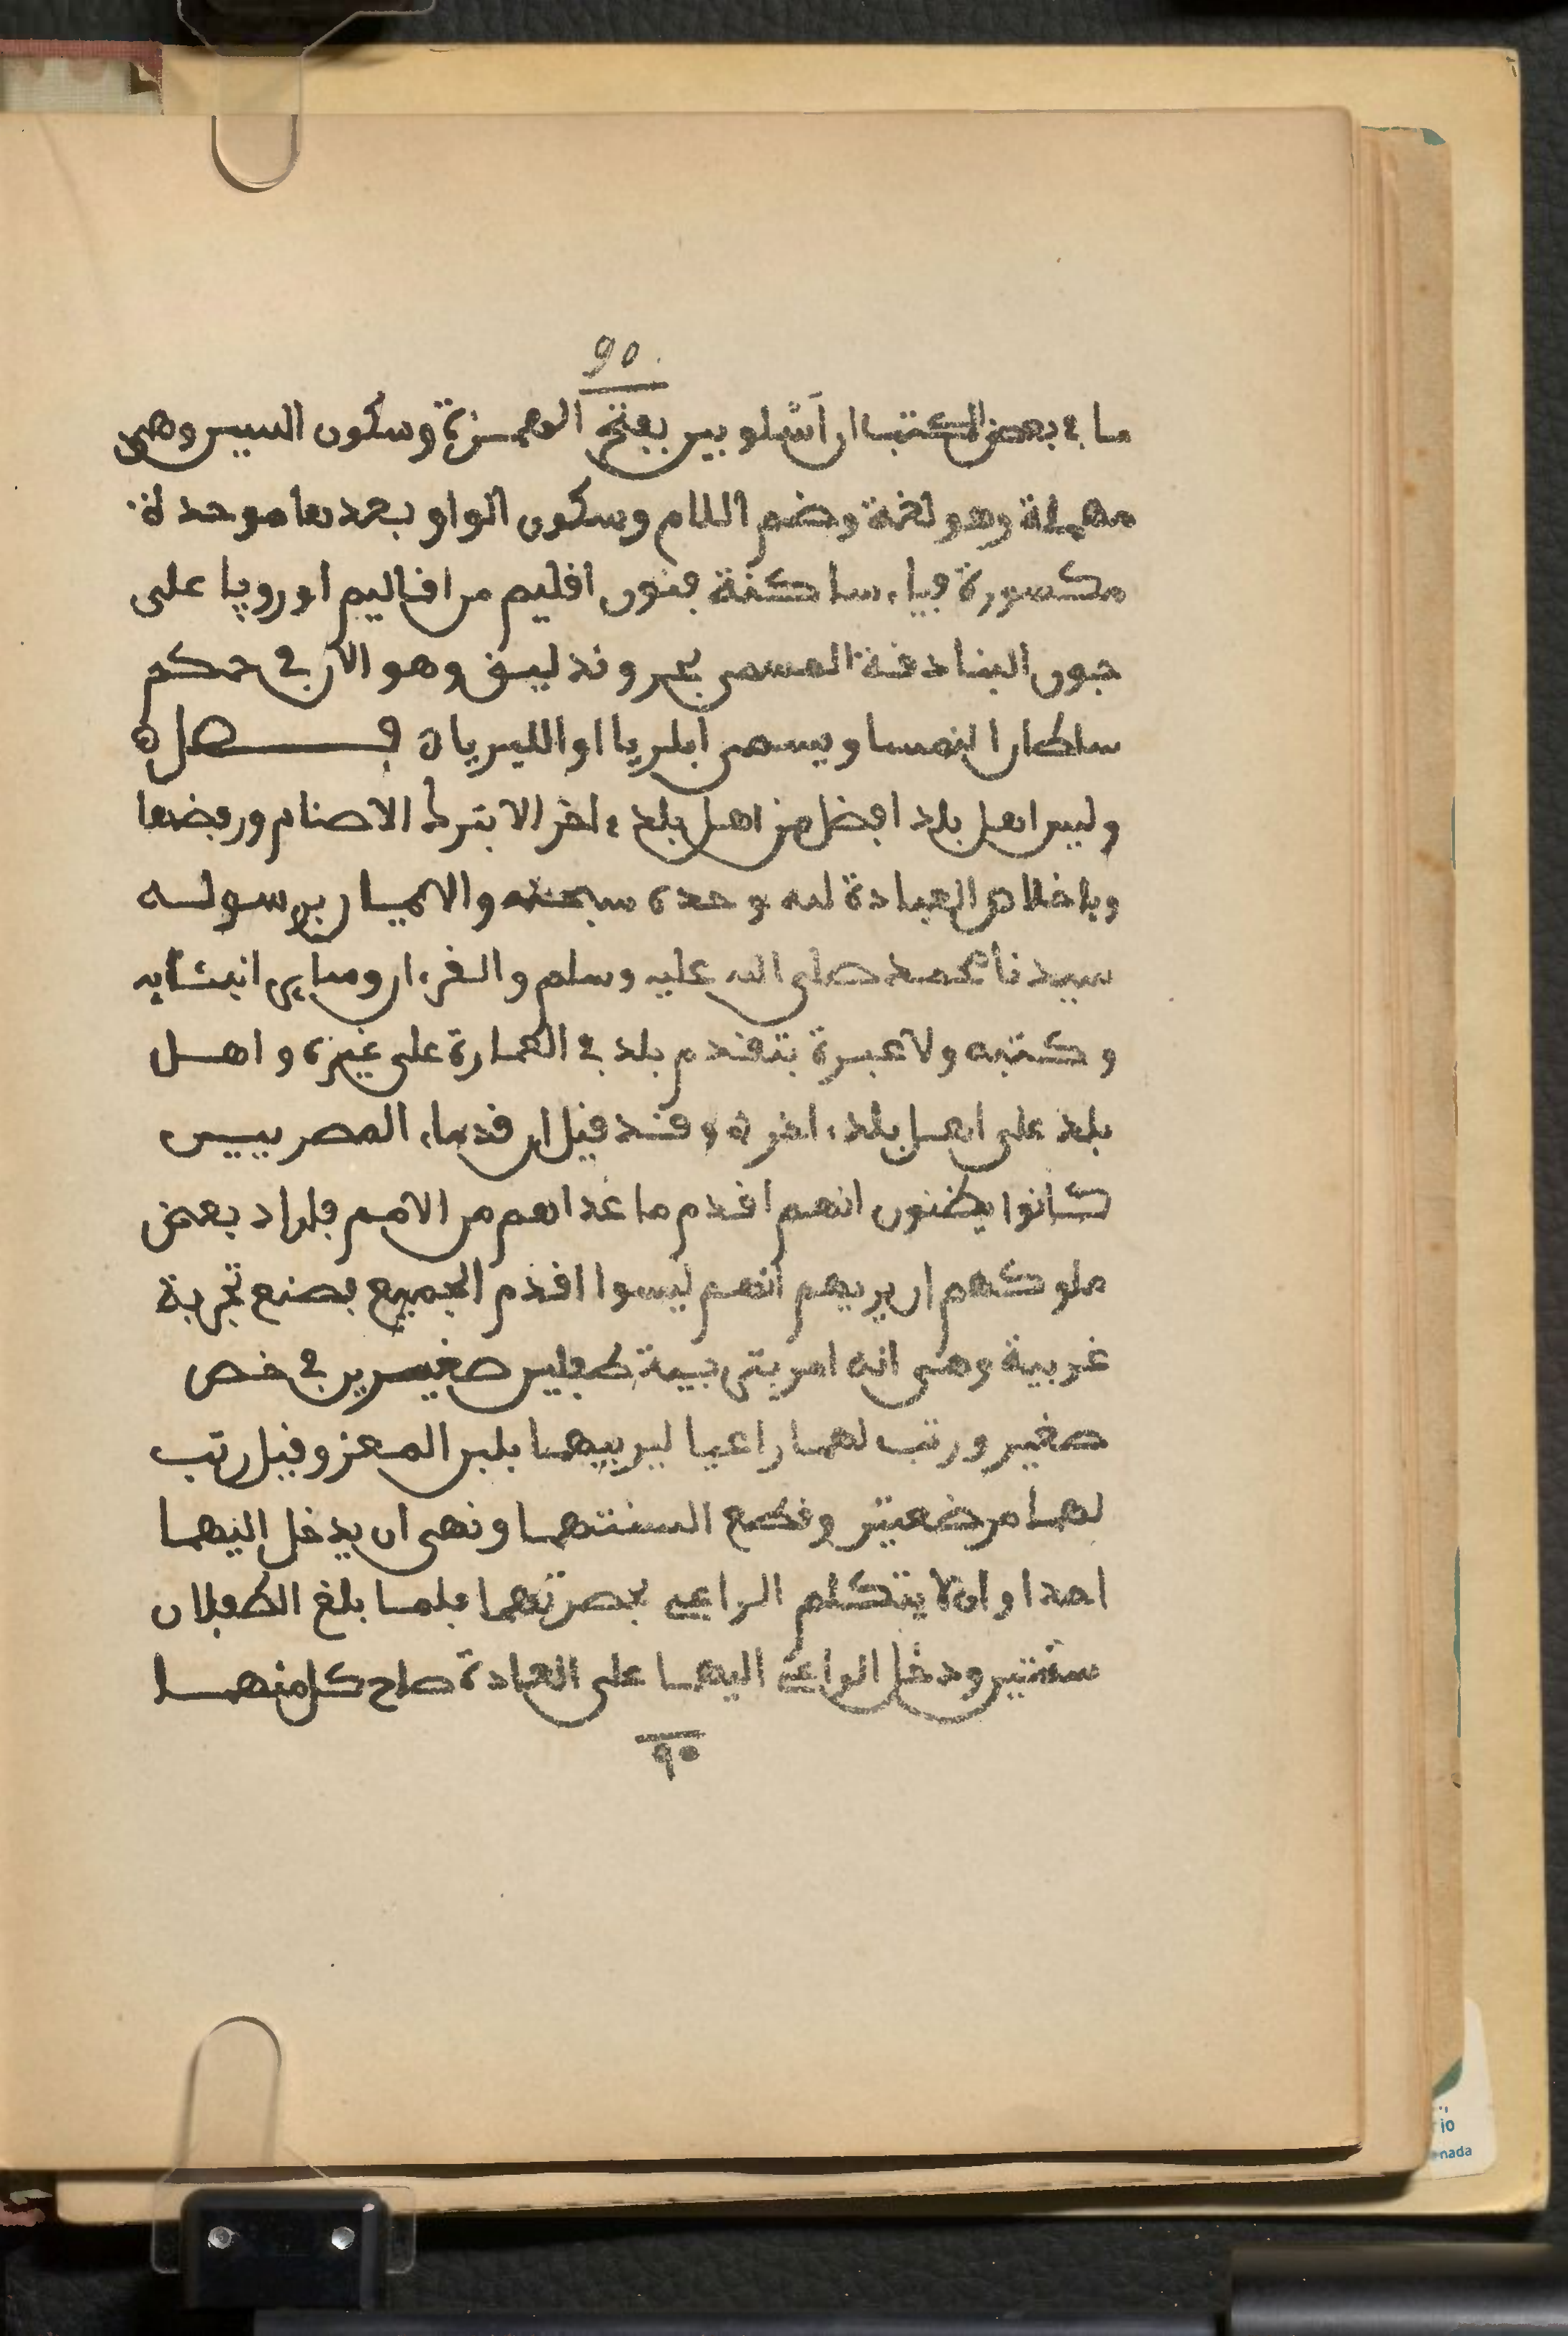 90
ما في بعض الكتب ان اشلوبين بفتح الهمزة وسكون السين وهي
مهملة وهو لغة وضم اللام وسكون الواو بعدها موحدة
مكسورة فياء ساكنة فنون اقليم من اقاليم اوروپا على
جون البنادقة المسمى بحر وندليق وهو الآن في حكم
سلطان النمسا ويسمى ابلريا او الليريان فصل ه
وليس اهل بلد افضل من اهل بلدة اخر الا بترك الاصنام ورفضها
وباخلاص العبادة لله وحده سبحنه والايمان برسوله
سيدنا محمد صلى الله عليه وسلم والقرءان وساير انبئايه
وكتبه ولا عبرة بتقدم بلد في العمارة على غيره واهل
بلد على اهل بلدة اخرى وقد قيل ان قدماء المصريين
كانوا يظنون انهم اقدم ما عداهم من الامم فلراد بعض
ملوكهم ان يريهم انهم ليسوا اقدم الجميع فصنع تجربة
غريبة وهي انه امر بتربية طفلين صغيرين في خص
صغير ورتب لهما راعيا ليربيهما بلبن المعز وقيل رتب
لهما مرضعتين وقطع السنتهما ونهى ان يدخل اليهما
احدا وان لا يتكلم الراعي بحضرتهما فلما بلغ الطفلان
سنتين ودخل الراعي اليهما على العادة صاح كل منهما
٩٠